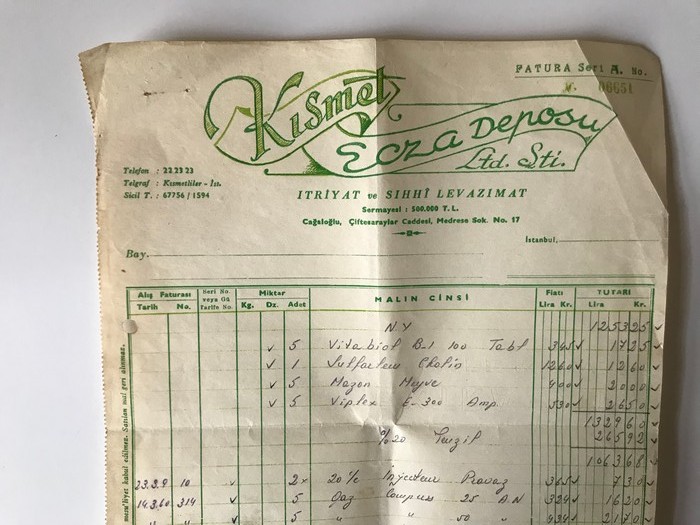 FATURA Seri A. No.
No. 06651
Kısmet
Ecza Deposu
Ltd. Şti.
Telefon : 22 23 23
Telgraf : Kısmetliler - İst.
Sicil T. : 67756 / 1594
ITRİYAT ve SIHHÎ LEVAZIMAT
Sermayesi : 500.000 T. L.
Cağaloğlu, Çiftesaraylar Caddesi, Medrese Sok. No. 17
İstanbul,
Bay.
Alış Faturası Seri No. veya Gü Tarife No. Miktar MALIN CİNSİ Fiatı TUTARI
Tarih No. Kg. Dz. Adet Lira Kr. Lira Kr.
N.Y 1253 25
5 Vitabiol B-1 100 Tabl 345 17 25
1 Chotin 1260 12 60
5 Mazon Meyve 400 20 00
5 Viplex E-300 Amp. 530 26 50
1329 60
%20 Tenzil 265 92
1063 68
23.3.9 10 2 20 lc İnjecteur Pravaz 365 7 30
14.3.60 314 5 Gaz Compres 25 A.N 324 16 20
5 " " 50 " 434 21 70
mesu'liyet kabul edilmez. Satılan mal geri alınmaz.